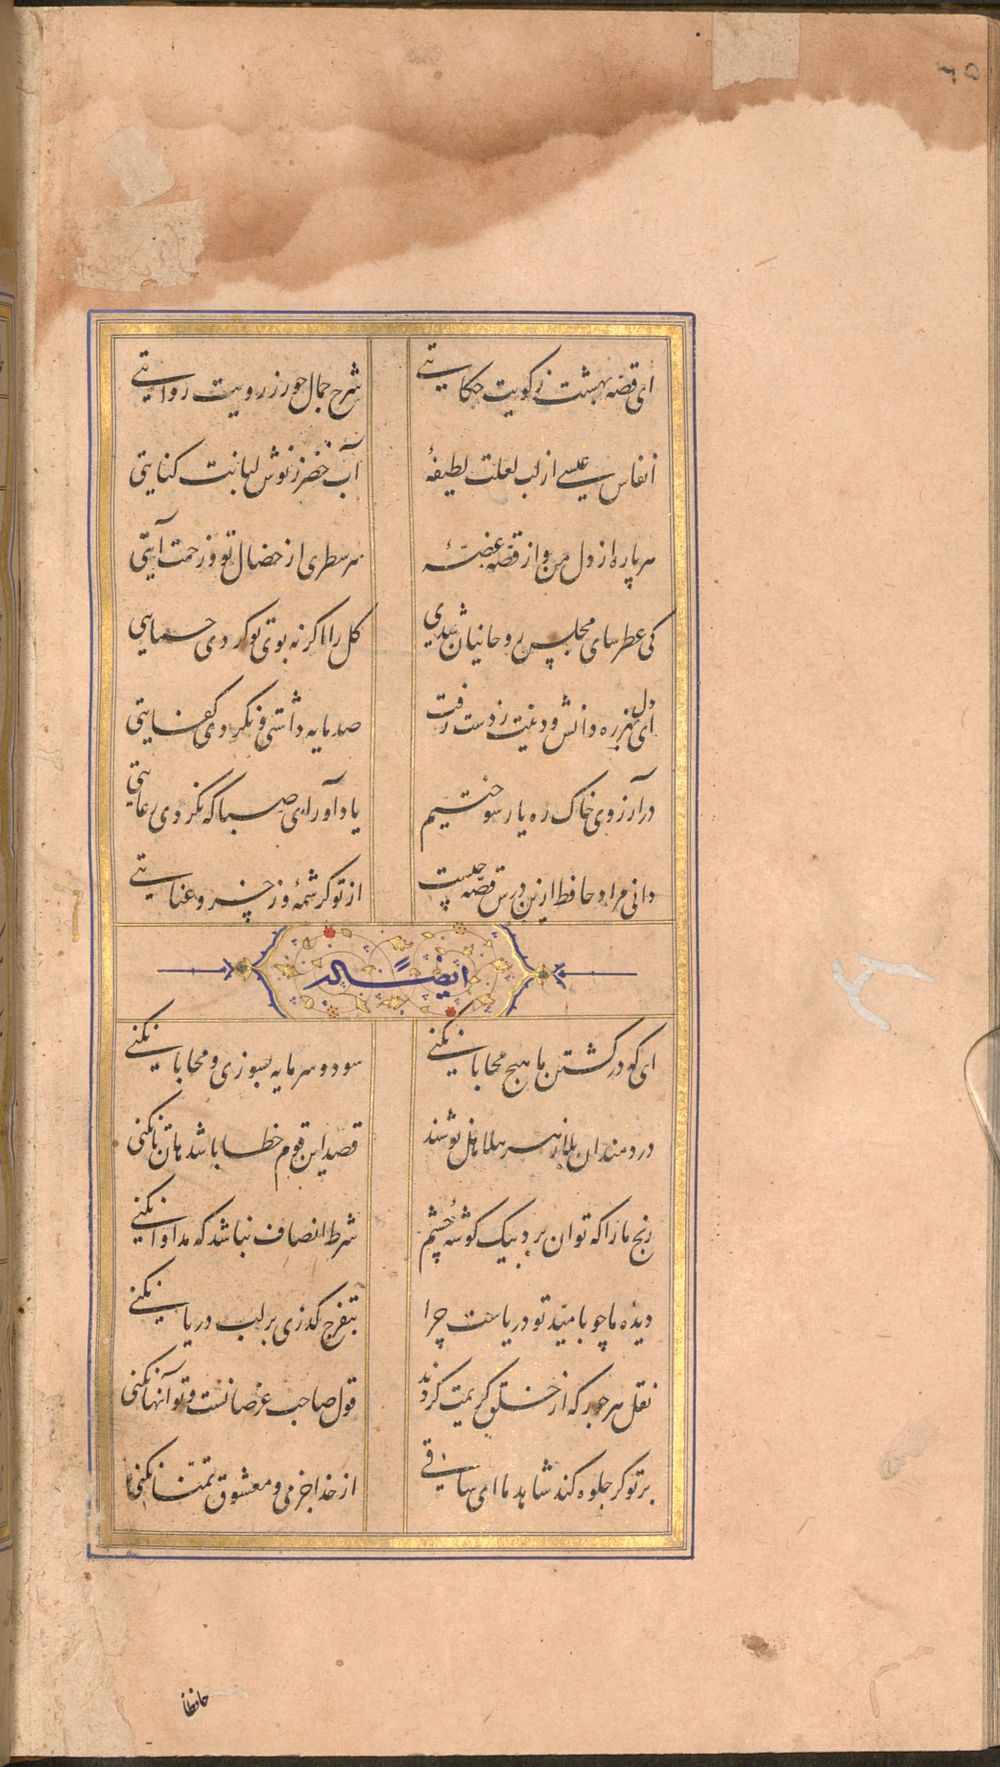 ای قصه بهشت ز کویت حکایتی شرح جمال حور ز رویت روایتی
انفاس عیسی از لب لعلت لطیفهٔ آب خضر ز نوش لبانت کنایتی
هر پاره از دل من و از قصه غصّهٔ هر سطری از خصال تو وز رحمت آیتی
کی عطرسای مجلس روحانیان شدی کل را اکر نه بوی تو کردی حمایتی
ای دل بهرزه دانش و دینت ز دست رفت صد مایه داشتی و نکردی کفایتی
در آرزوی خاک ره یار سوختیم یاد آور ای صبا که نکردی رعایتی
دانی مراد حافظ ازین درس قصه چیست از تو کرشمهٔ وز خسرو عنایتی
ایضاً له
ای که در کشتن ما هیچ محابا نکنی سود و سرمایه بسوزی و محابا نکنی
دردمندان بلا زهر هلاهل نوشند قصد این قوم خطا باشد هان تا نکنی
رنج ما را که توان برد بیک کوشهٔ چشم شرط انصاف نباشد که مداوا نکنی
دیدهٔ ما چو بامید تو دریاست چرا بتفرج کذری بر لب دریا نکنی
نقل هر جور که از خلق کریمت کردند قول صاحب غرضانست و تو آنها نکنی
بر تو کر جلوه کند شاهد ما ای ساقی از خدا جز می و معشوق تمنا نکنی
حافظا